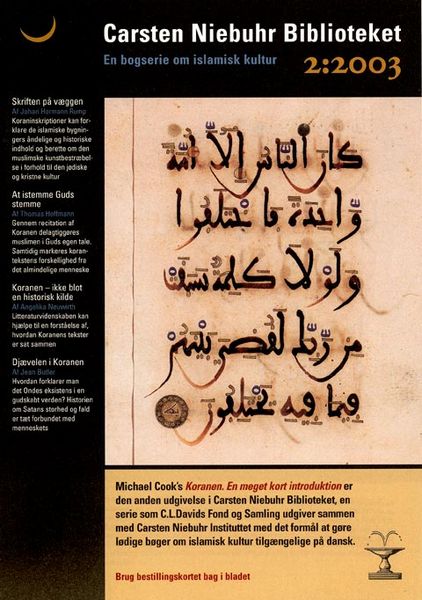 Carsten Niebuhr Biblioteket
En bogserie om islamisk kultur
2:2003
Skriften på væggen
Af Johan Hermann Rump
Koraninskriptioner kan for-
klare de islamiske bygnin-
gers åndelige og historiske
indhold og berette om den
muslimske kunstbestræbel-
se i forhold til den jødiske
og kristne kultur
At istemme Guds
stemme
Af Thomas Hoffmann
Gennem recitation af
Koranen delagtiggøres
muslimen i Guds egen tale.
Samtidig markeres koran-
tekstens forskellighed fra
det almindelige menneske
Koranen – ikke blot
en historisk kilde
Af Angelika Neuwirth
Litteraturvidenskaben kan
hjælpe til en forståelse af,
hvordan Koranens tekster
er sat sammen
Djævelen i Koranen
Af Jean Butler
Hvordan forklarer man
det Ondes eksistens i en
gudskabt verden? Historien
om Satans storhed og fald
er tæt forbundet med
menneskets
كان الناس إلا أمة
واحدة فاختلفوا
ولولا كلمة سبقت
من ربك لقضي بينهم
فيما فيه يختلفون
Michael Cook's Koranen. En meget kort introduktion er
den anden udgivelse i Carsten Niebuhr Biblioteket, en
serie som C.L.Davids Fond og Samling udgiver sammen
med Carsten Niebuhr Instituttet med det formål at gøre
lødige bøger om islamisk kultur tilgængelige på dansk.
Brug bestillingskortet bag i bladet